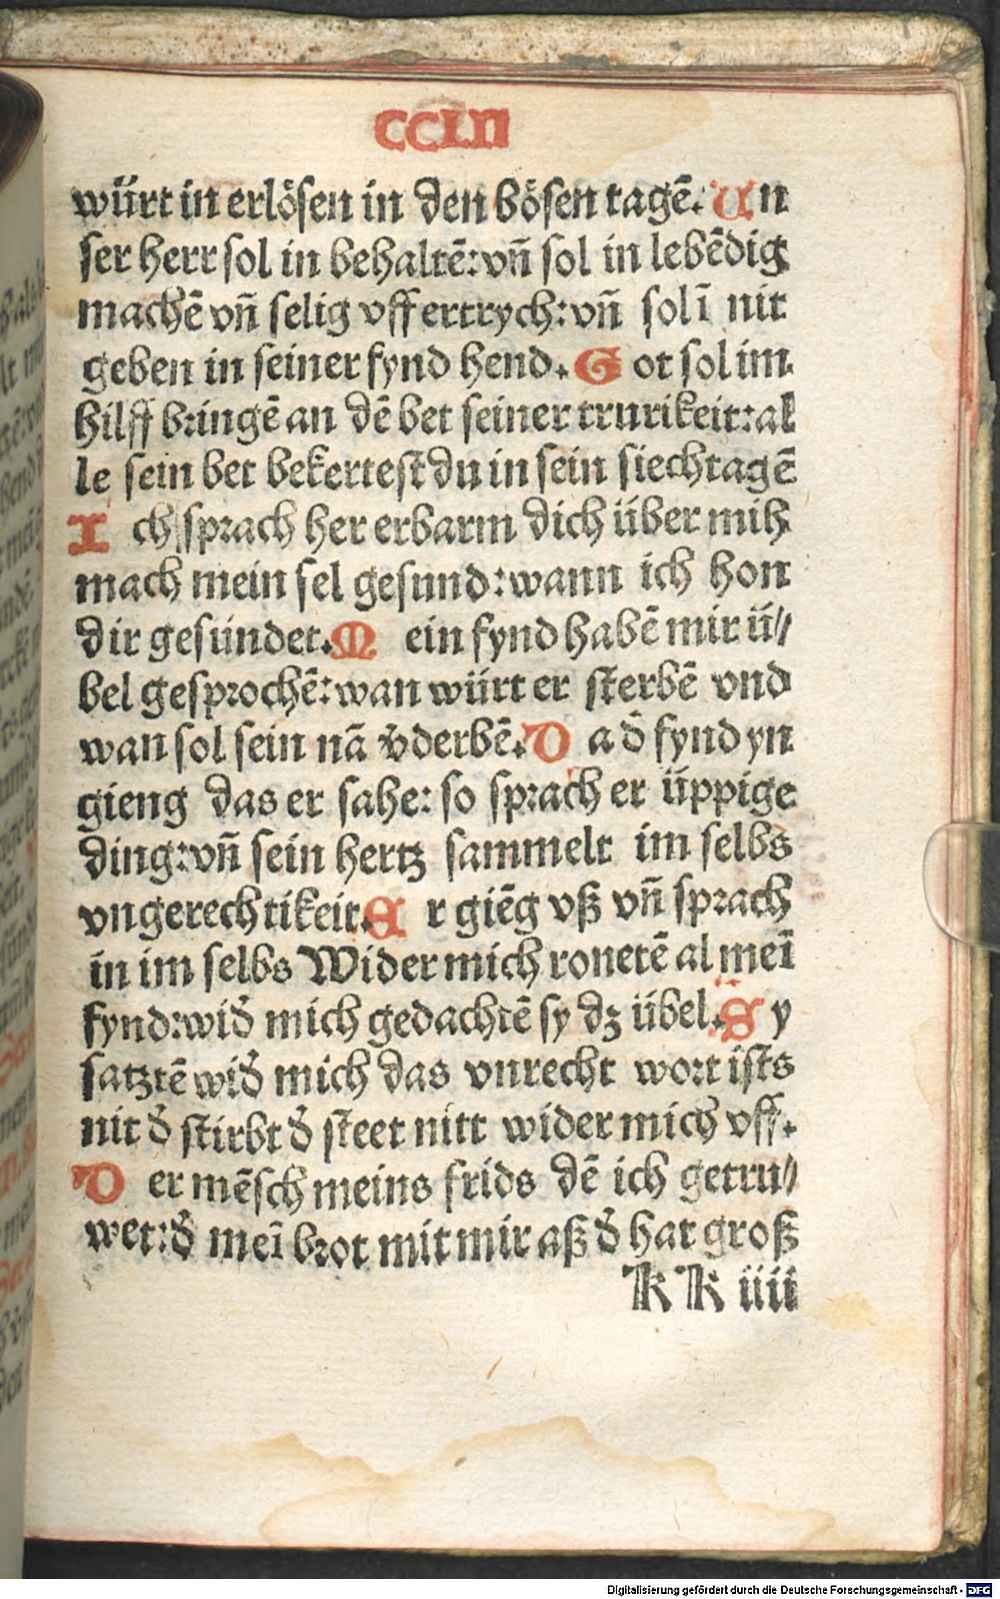 CCLII
würt in erlösen in den bösen tagē. Un
ser herr sol in behaltē: vn̄ sol in lebēdig
machē vn̄ selig vff ertrych: vn̄ sol ī nit
geben in seiner fynd hend. Got sol im
hilff bringē an dē bet seiner trurikeit: al
le sein bet bekertest du in sein siechtagē
Ich sprach her erbarm dich über mih
mach mein sel gesund: wann ich hon
dir gesündet. Mein fynd habē mir ü//
bel gesprochē: wan würt er sterbē vnd
wan sol sein nā v̄derbē. Da d̄ fynd yn
gieng das er sahe: so sprach er üppige
ding: vn̄ sein hertz sammelt im selbs
vngerechtikeit. Er giēg vß vn̄ sprach
in im selbs Wider mich ronetē al meī
fynd: wid̄ mich gedachtē sy dz übel. Sy
satztē wid̄ mich das vnrecht wort ists
nit d̄ stirbt d̄ steet nitt wider mich vff.
Der mēsch meins frids dē ich getru//
wet: d̄ meī brot mit mir aß d̄ hat groß
KK iiii
Digitalisierung gefördert durch die Deutsche Forschungsgemeinschaft - DFG